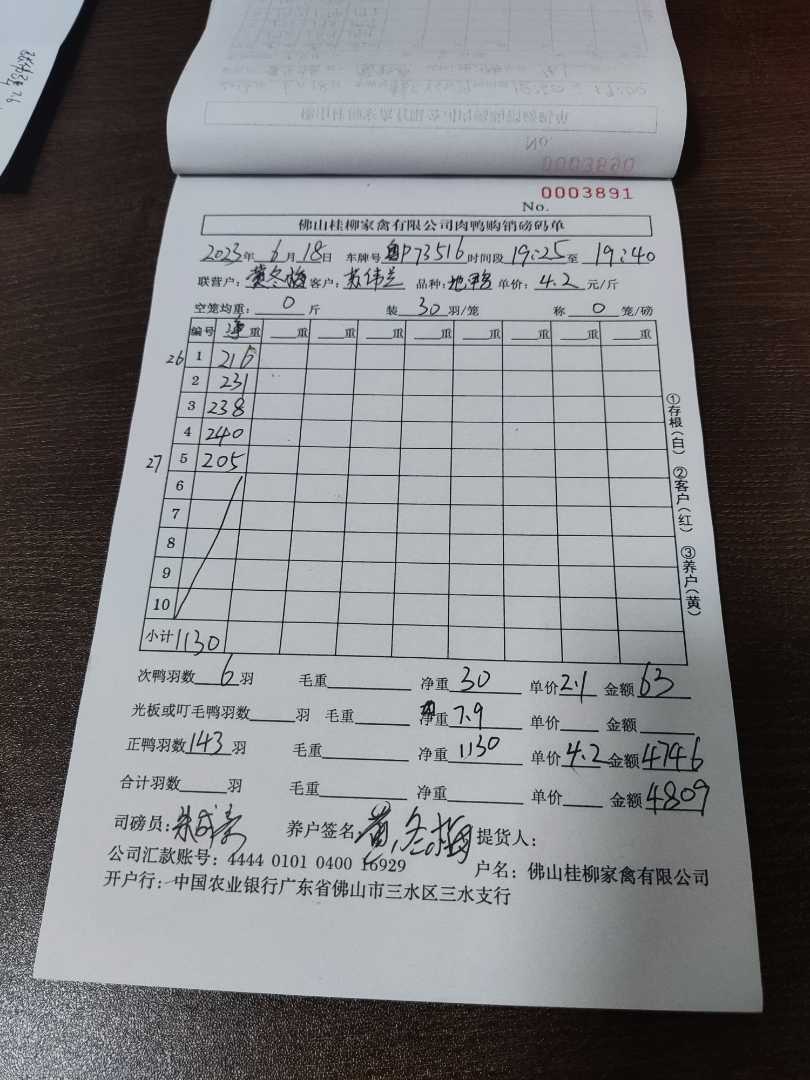 0003890
0003891
No.
佛山桂柳家禽有限公司肉鸭购销磅码单
2023年 6月 18日 车牌号 粤P73516 时间段 19:25 至 19:40
联营户: 黄冬梅 客户: 苏伟兰 品种: 地鸭 单价: 4.2 元/斤
空笼均重: 0 斤 装 30 羽/笼 称 0 笼/磅
编号 净重 重 重 重 重 重 重 重 重
26 1 216
2 231
3 238
4 240
27 5 205
6
7
8
9
10
小计 1130
①存根(白) ②客户(红) ③养户(黄)
次鸭羽数 6 羽 毛重 净重 30 单价 2.1 金额 63
光板或叮毛鸭羽数 羽 毛重 净重 7.9 单价 金额
正鸭羽数 143 羽 毛重 净重 1130 单价 4.2 金额 4746
合计羽数 羽 毛重 净重 单价 金额 4809
司磅员: 养户签名 黄冬梅 提货人:
公司汇款账号: 4444 0101 0400 16929 户名: 佛山桂柳家禽有限公司
开户行: 中国农业银行广东省佛山市三水区三水支行